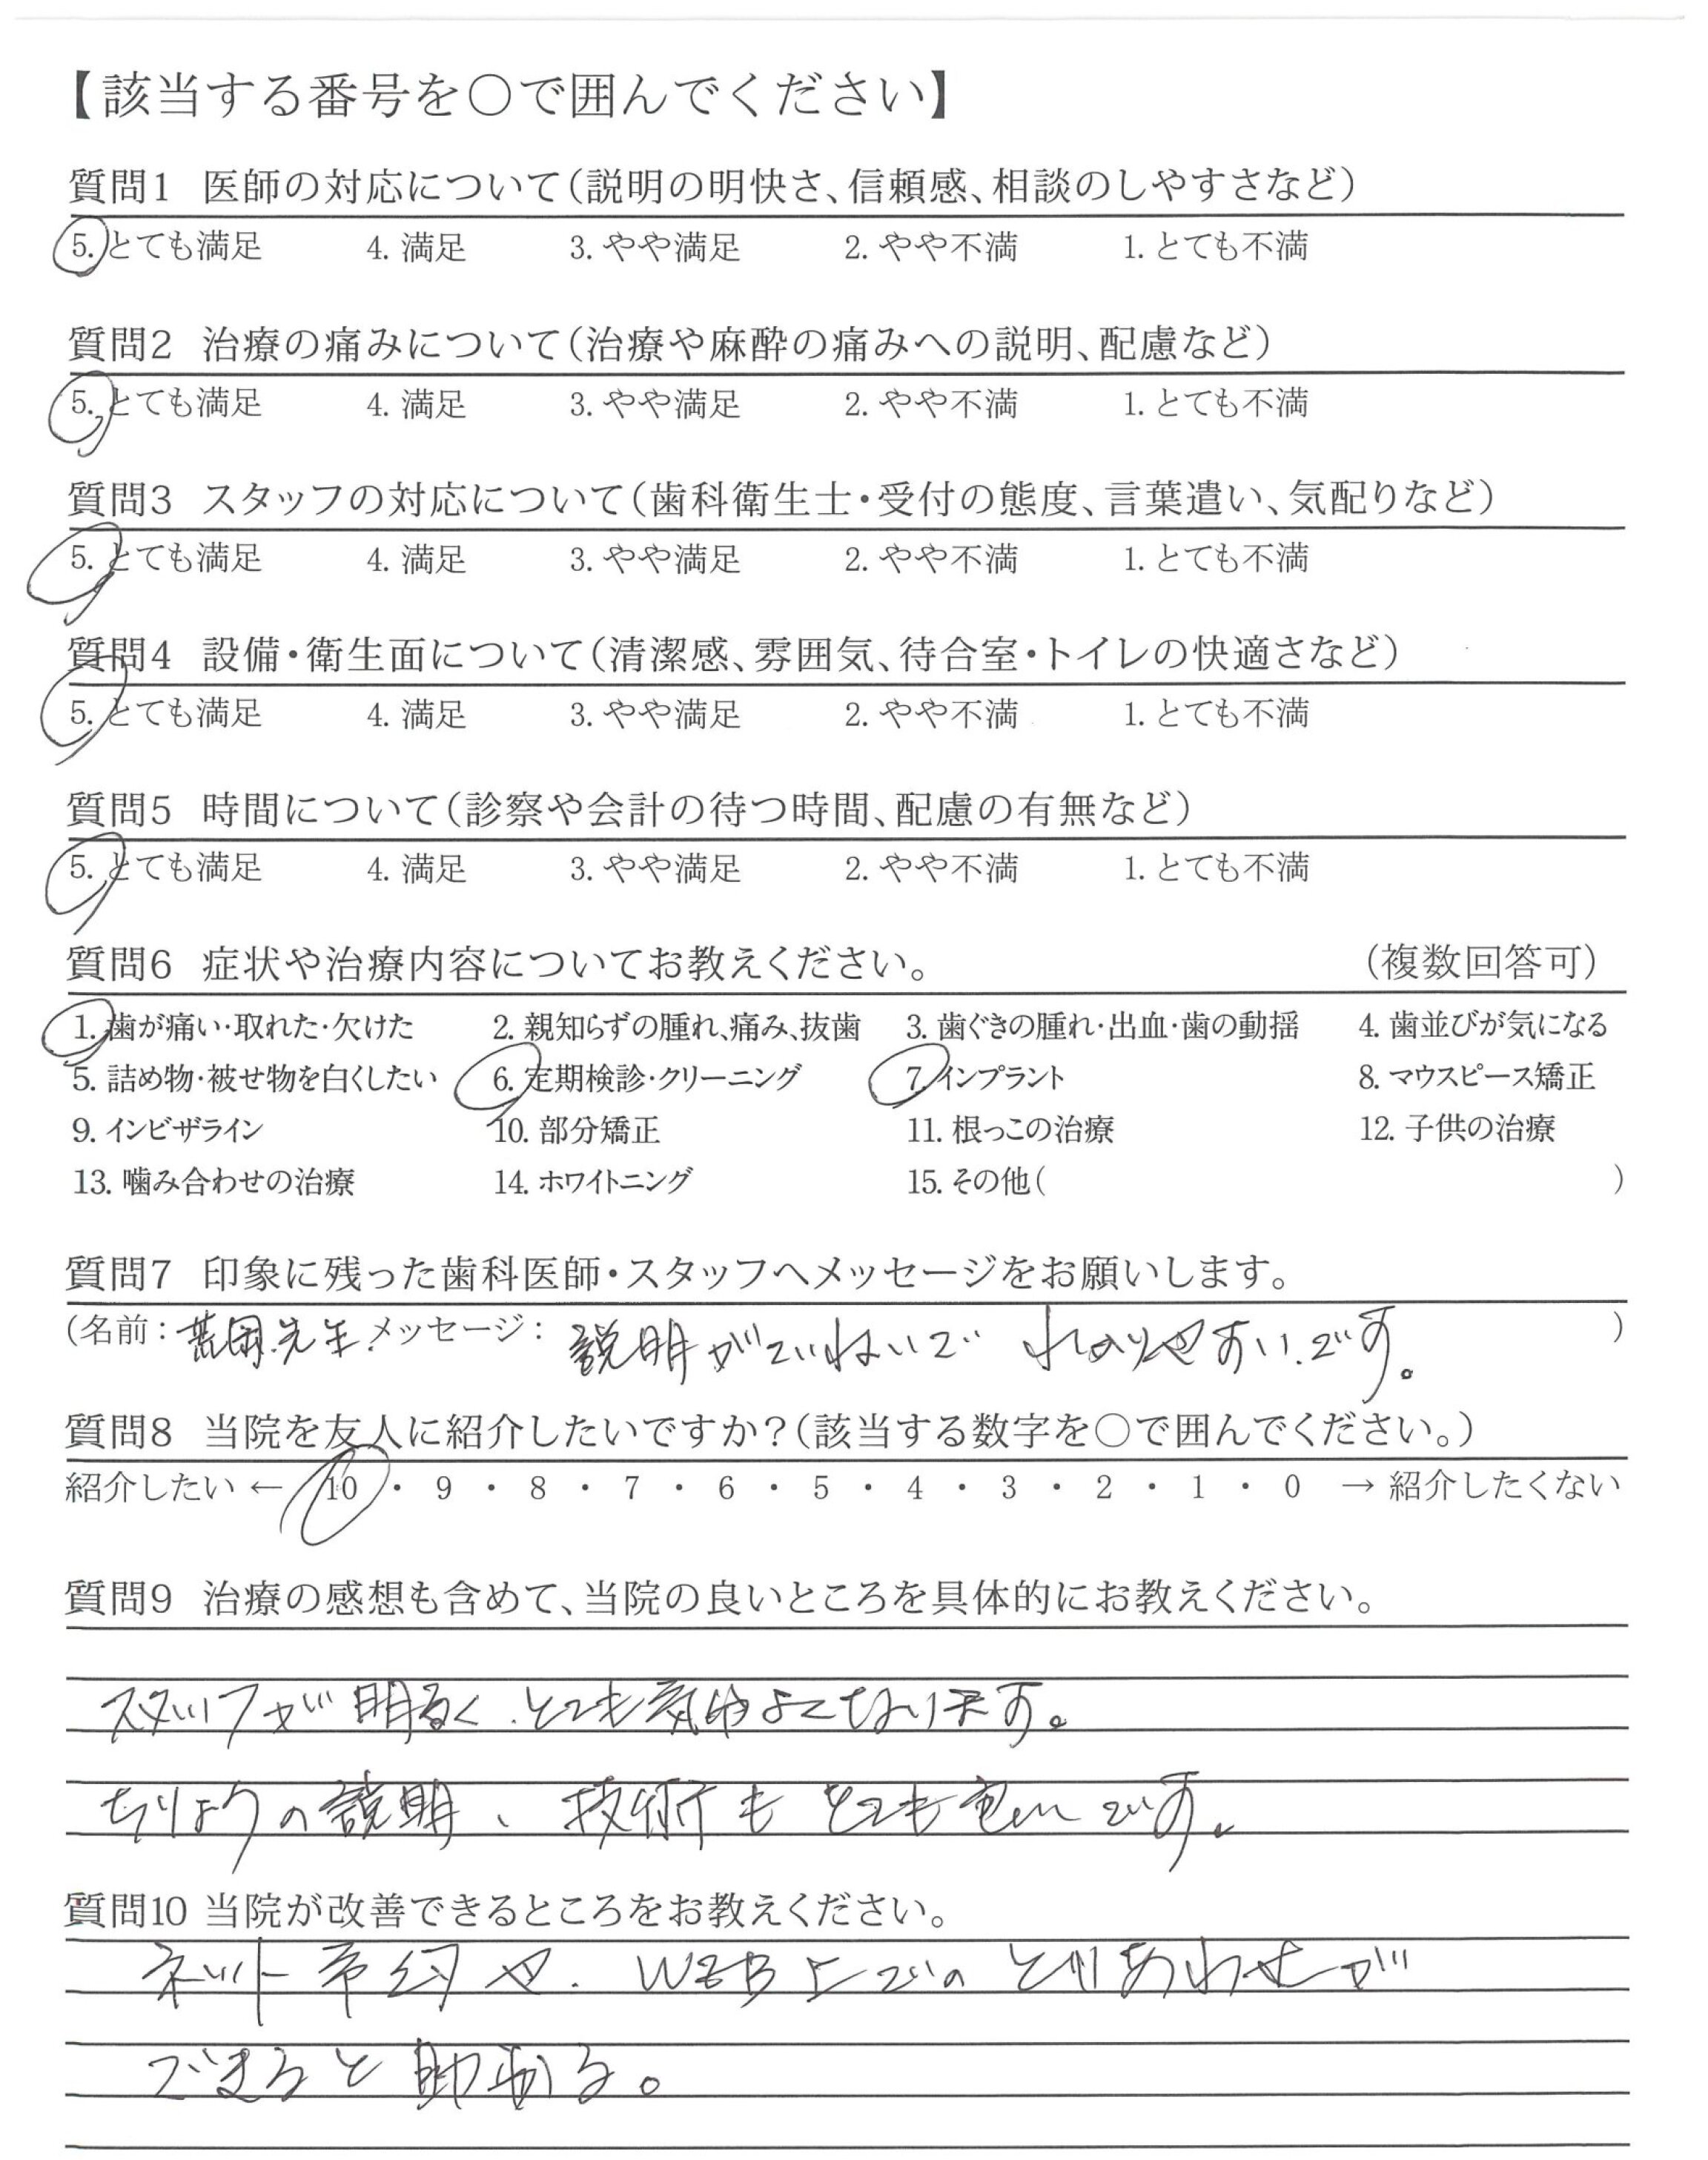 【該当する番号を○で囲んでください】
質問1 医師の対応について（説明の明快さ、信頼感、相談のしやすさなど）
5. とても満足 4. 満足 3. やや満足 2. やや不満 1. とても不満
質問2 治療の痛みについて（治療や麻酔の痛みへの説明、配慮など）
5. とても満足 4. 満足 3. やや満足 2. やや不満 1. とても不満
質問3 スタッフの対応について（歯科衛生士・受付の態度、言葉遣い、気配りなど）
5. とても満足 4. 満足 3. やや満足 2. やや不満 1. とても不満
質問4 設備・衛生面について（清潔感、雰囲気、待合室・トイレの快適さなど）
5. とても満足 4. 満足 3. やや満足 2. やや不満 1. とても不満
質問5 時間について（診察や会計の待つ時間、配慮の有無など）
5. とても満足 4. 満足 3. やや満足 2. やや不満 1. とても不満
質問6 症状や治療内容についてお教えください。 （複数回答可）
1. 歯が痛い・取れた・欠けた 2. 親知らずの腫れ、痛み、抜歯 3. 歯ぐきの腫れ・出血・歯の動揺 4. 歯並びが気になる
5. 詰め物・被せ物を白くしたい 6. 定期検診・クリーニング 7. インプラント 8. マウスピース矯正
9. インビザライン 10. 部分矯正 11. 根っこの治療 12. 子供の治療
13. 噛み合わせの治療 14. ホワイトニング 15. その他（ ）
質問7 印象に残った歯科医師・スタッフへメッセージをお願いします。
（名前： 先生 メッセージ： 説明がていねいで わかりやすいです。 ）
質問8 当院を友人に紹介したいですか？（該当する数字を○で囲んでください。）
紹介したい ← 10 ・ 9 ・ 8 ・ 7 ・ 6 ・ 5 ・ 4 ・ 3 ・ 2 ・ 1 ・ 0 → 紹介したくない
質問9 治療の感想も含めて、当院の良いところを具体的にお教えください。
スタッフが明るく、とても気持よくなります。
ちりょうの説明、技術もとても です。
質問10 当院が改善できるところをお教えください。
ネット予約や、WEB上でのといあわせが
できると助かる。